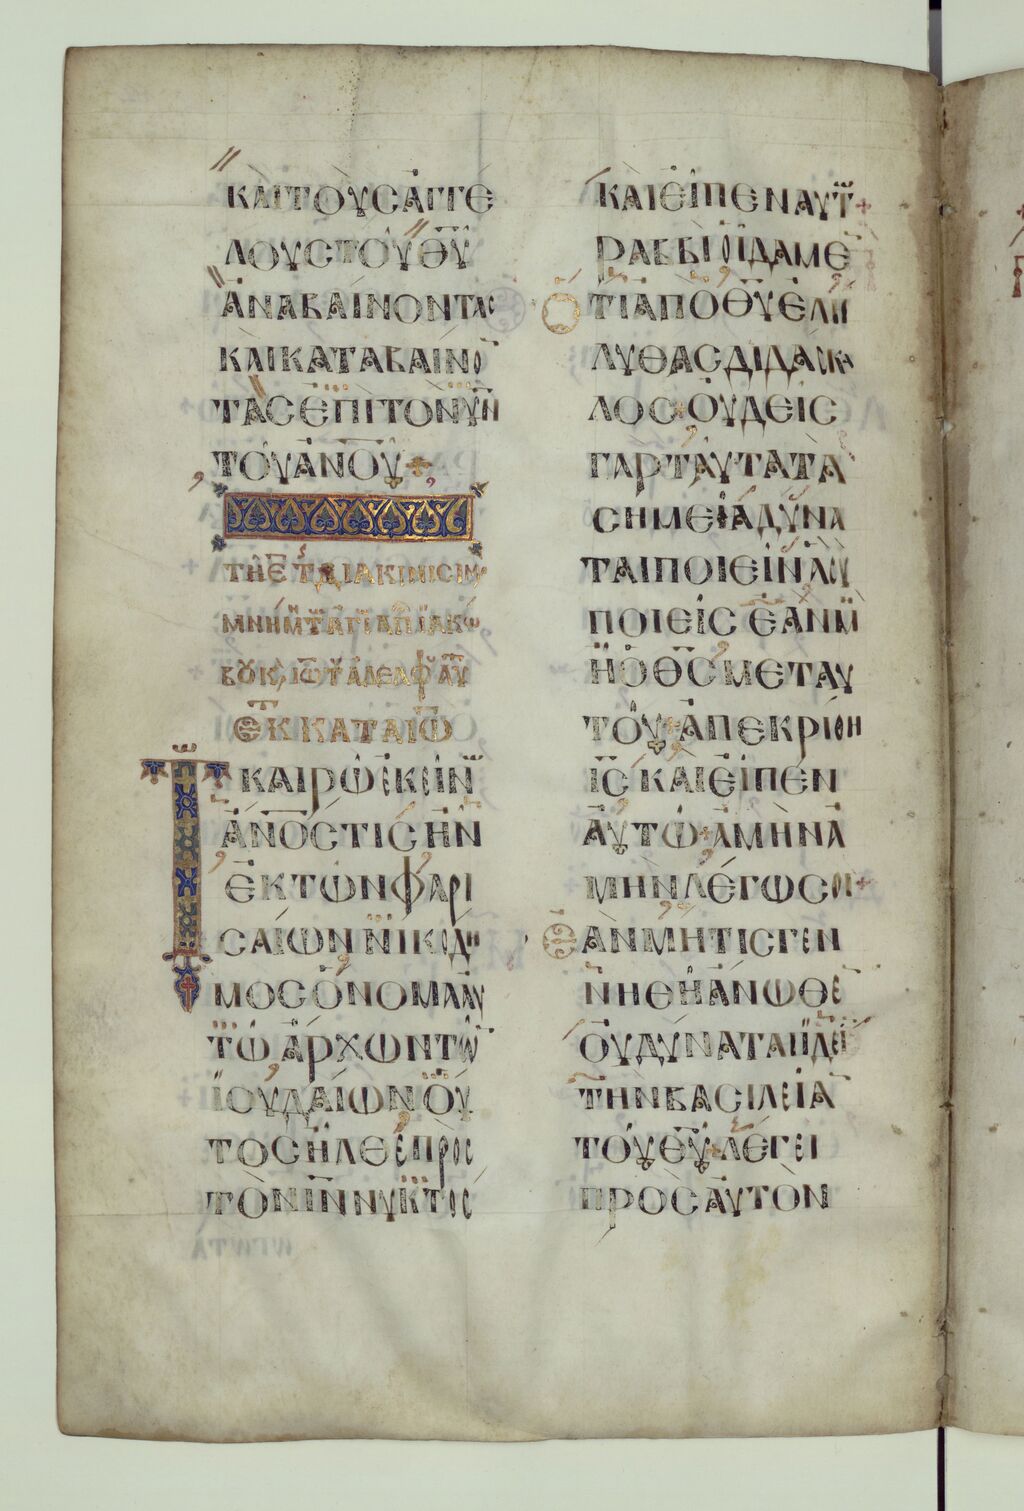 ΚΑΙΤΟΥΣΑΓΓΕ
ΛΟΥΣΤΟΥΘΥ
ΑΝΑΒΑΙΝΟΝΤΑΣ
ΚΑΙΚΑΤΑΒΑΙΝΟ
ΤΑΣΕΠΙΤΟΝΥΝ
ΤΟΥΑΝΟΥ
ΤΗΕΤΔΙΑΚΙΝΗΣΙΜ
ΜΝΗΜΤΑΓΙΑΠΙΑΚΩ
ΒΟΥΚΑΔΕΛΦΑΥ
ΕΚΚΑΤΑΙΩ
ΤΚΑΙΡΩΕΚΕΙΝ
ΑΝΟΣΤΙΣΗΝ
ΕΚΤΩΝΦΑΡΙ
ΣΑΙΩΝΝΙΚΟΔΗ
ΜΟΣΟΝΟΜΑΑΥ
ΤΩΑΡΧΩΝΤΩ
ΙΟΥΔΑΙΩΝΟΥ
ΤΟΣΗΛΘΕΠΡΟΣ
ΤΟΝΙΝΝΥΚΤΟΣ
ΚΑΙΕΙΠΕΝΑΥΤ
ΡΑΒΒΙΟΙΔΑΜΕ
ΟΤΙΑΠΟΘΥΕΛΗ
ΛΥΘΑΣΔΙΔΑΣΚΑ
ΛΟΣ·ΟΥΔΕΙΣ
ΓΑΡΤΑΥΤΑΤΑ
ΣΗΜΕΙΑΔΥΝΑ
ΤΑΙΠΟΙΕΙΝΑΣΥ
ΠΟΙΕΙΣΕΑΝΜ
ΗΟΘΣΜΕΤΑΥ
ΤΟΥ·ΑΠΕΚΡΙΘΗ
ΙΣΚΑΙΕΙΠΕΝ
ΑΥΤΩ·ΑΜΗΝΑ
ΜΗΝΛΕΓΩΣΟΙ+
ΕΑΝΜΗΤΙΣΓΕΝ
ΝΗΘΗΑΝΩΘΕ
ΟΥΔΥΝΑΤΑΙΙΔΕΙ
ΤΗΝΒΑΣΙΛΕΙΑ
ΤΟΥΘΥ·ΛΕΓΕΙ
ΠΡΟΣΑΥΤΟΝ